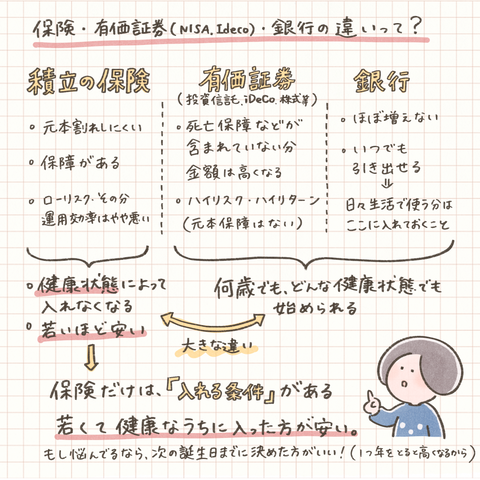 保険・有価証券(NISA.Ideco)・銀行の違いって？
積立の保険
元本割れしにくい
保障がある
ローリスク・その分
運用効率はやや悪い
有価証券
(投資信託、iDeCo、株式等)
死亡保障などが
含まれていない分
金額は高くなる
ハイリスク・ハイリターン
(元本保障はない)
銀行
ほぼ増えない
いつでも
引き出せる
⇓
日々生活で使う分は
ここに入れておくこと
健康状態によって
入れなくなる
若いほど安い
何歳でも、どんな健康状態でも
始められる
大きな違い
保険だけは、「入れる条件」がある
若くて健康なうちに入った方が安い。
もし悩んでるなら、次の誕生日までに決めた方がいい！(1つ年をとると高くなるから)